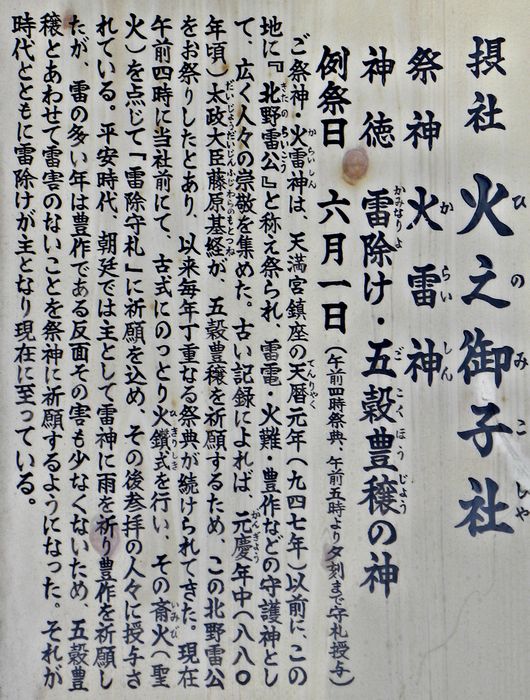 摂社 火之御子社
祭神 火雷神
神徳 雷除け・五穀豊穣の神
例祭日 六月一日（午前四時祭典、午前五時より夕刻まで守札授与）
ご祭神・火雷神は、天満宮鎮座の天暦元年（九四七年）以前に、この
地に『北野雷公』と称え祭られ、雷電・火難・豊作などの守護神とし
て、広く人々の崇敬を集めた。古い記録によれば、元慶年中（八八〇
年頃）太政大臣藤原基経が、五穀豊穣を祈願するため、この北野雷公
をお祭りしたとあり、以来毎年丁重なる祭典が続けられてきた。現在
午前四時に当社前にて、古式にのっとり火鑽式を行い、その斎火（聖
火）を点じて「雷除守札」に祈願を込め、その後参拝の人々に授与さ
れている。平安時代、朝廷では主として雷神に雨を祈り豊作を祈願し
たが、雷の多い年は豊作である反面その害も少なくないため、五穀豊
穣とあわせて雷害のないことを祭神に祈願するようになった。それが
時代とともに雷除けが主となり現在に至っている。